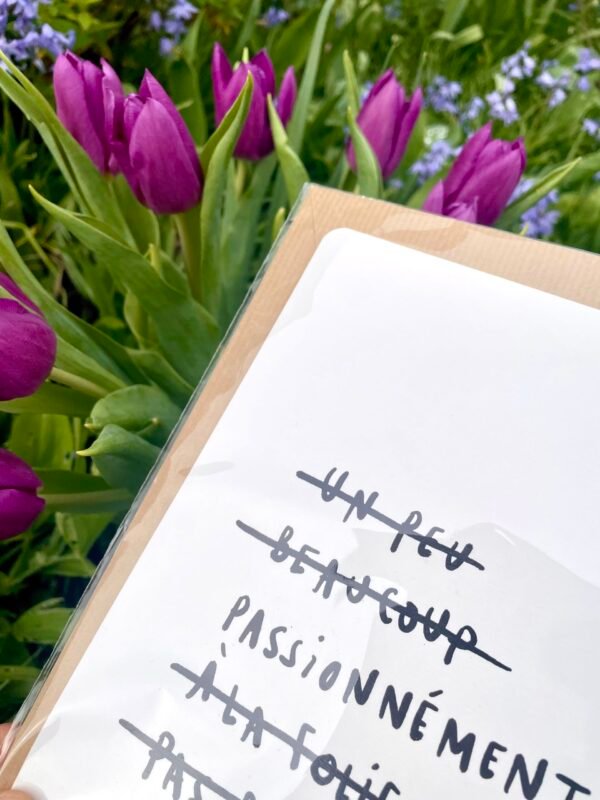 UN PEU
BEAUCOUP
PASSIONNÉMENT
À LA FOLIE
PAS